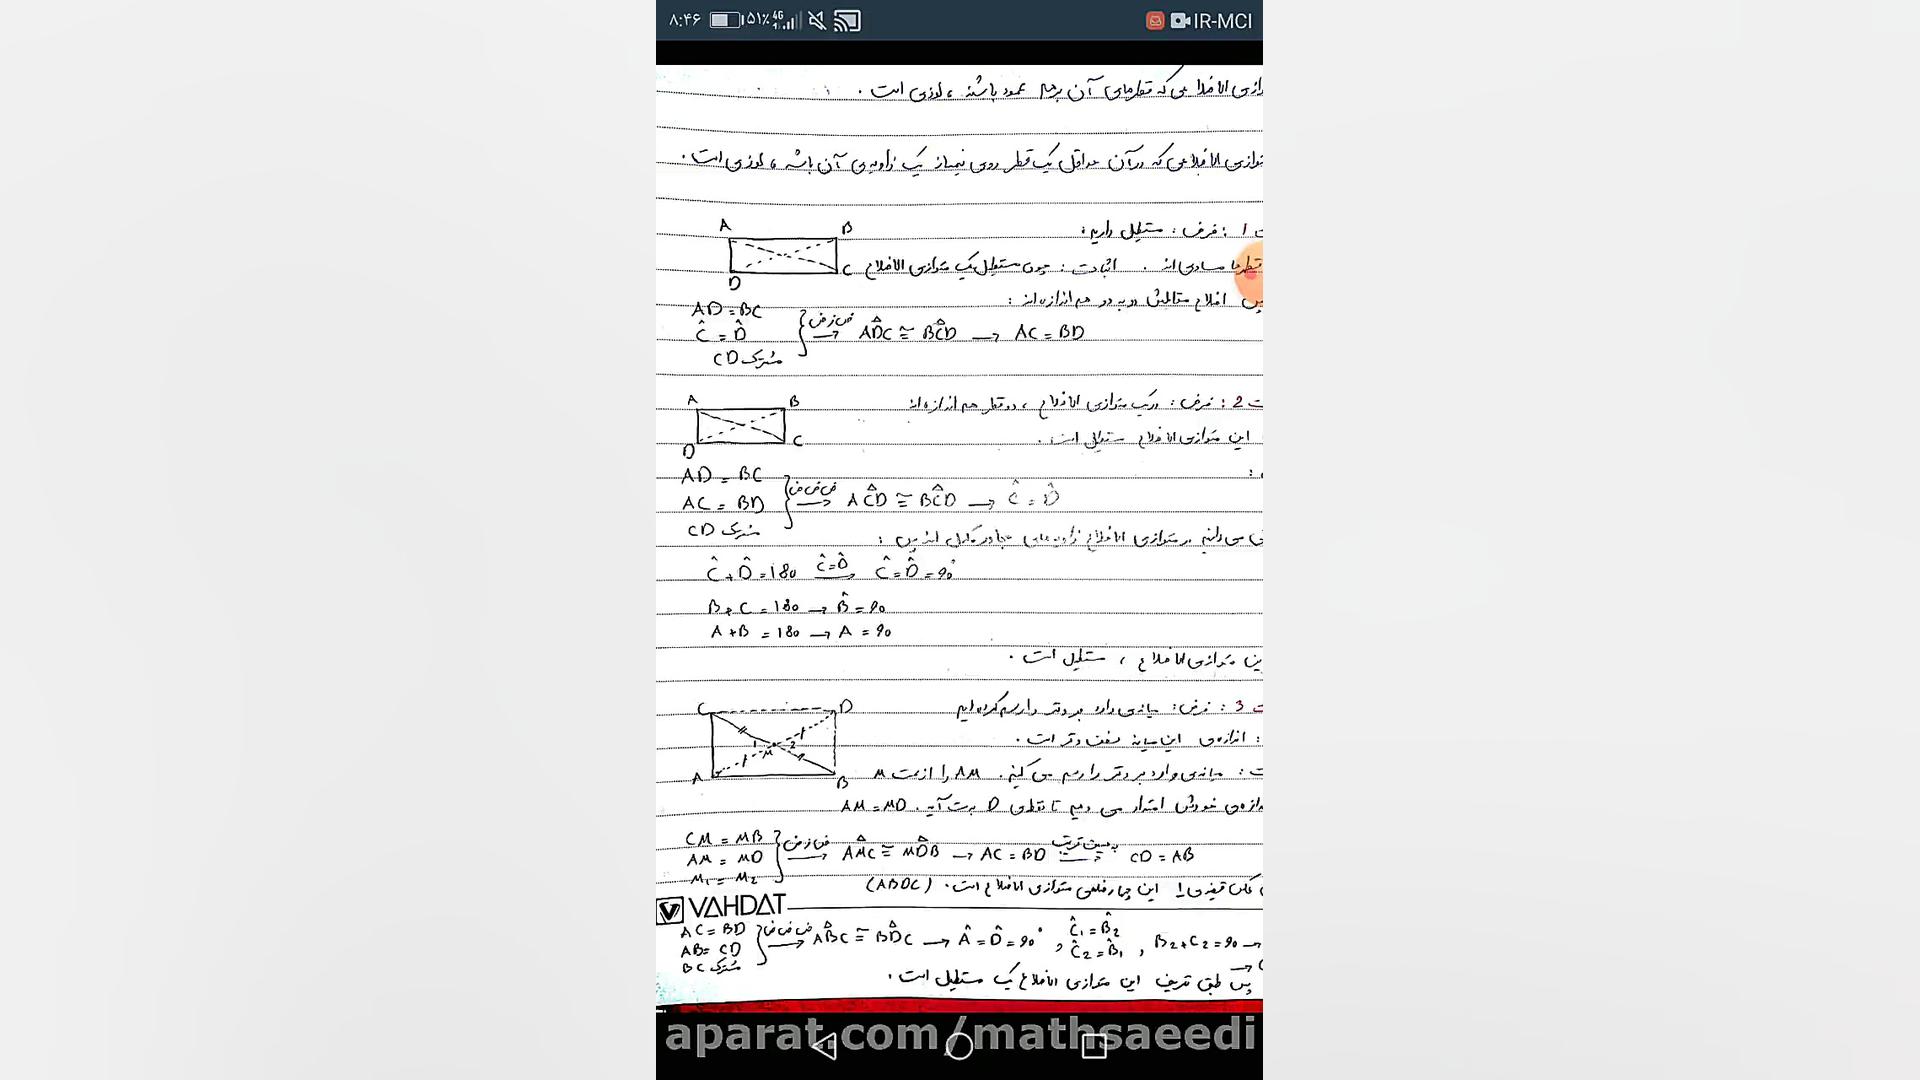 ۸:۴۶ ۵۱٪ 4G IR-MCI
که قطرهای آن برهم عمود باشند ، لوزی است .
متوازی الاضلاعی که در آن حداقل یک قطر روی نیمساز یک زاویه‌ی آن باشد ، لوزی است .
1 : فرض : مستطیل داریم :
A B
قطرها مساوی اند . اثبات : چون مستطیل یک متوازی الاضلاع
D C
اضلاع مقابلش دو به دو هم اندازه اند :
AD = BC
Ĉ = D̂ } ض ز ض → ADC ≅ BCD → AC = BD
CD مشترک
2 : فرض : در یک متوازی الاضلاع ، دو قطر هم اندازه اند
A B
این متوازی الاضلاع مستطیل است .
D C
AD = BC
AC = BD } ض ض ض → ACD ≅ BCD → Ĉ = D̂
CD مشترک
می دانیم در متوازی الاضلاع زاویه‌های مجاور مکمل اند پس :
Ĉ + D̂ = 180 Ĉ=D̂ → Ĉ = D̂ = 90°
B + C = 180 → B̂ = 90
A + B = 180 → A = 90
متوازی الاضلاع ، مستطیل است .
3 : فرض : میانه‌ی وارد بر وتر را رسم کرده ایم
C D
: اندازه‌ی این میانه نصف وتر است .
1 M 2
: میانه‌ی وارد بر وتر را رسم می کنیم . AM را از سمت M
A B
خودش امتداد می دهیم تا نقطه‌ی D بدست آید . AM = MD
CM = MB
AM = MD } ض ز ض → AMC ≅ MDB → AC = BD به همین ترتیب → CD = AB
M₁ = M₂
این چهارضلعی متوازی الاضلاع است . (ABDC)
VAHDAT
AC = BD
AB = CD } ض ض ض → ABC ≅ BDC → Â = D̂ = 90° , Ĉ₁ = B̂₂ Ĉ₂ = B̂₁ , B₂ + C₂ = 90 →
BC مشترک
پس طبق تعریف این متوازی الاضلاع یک مستطیل است .
aparat.com/mathsaeedi